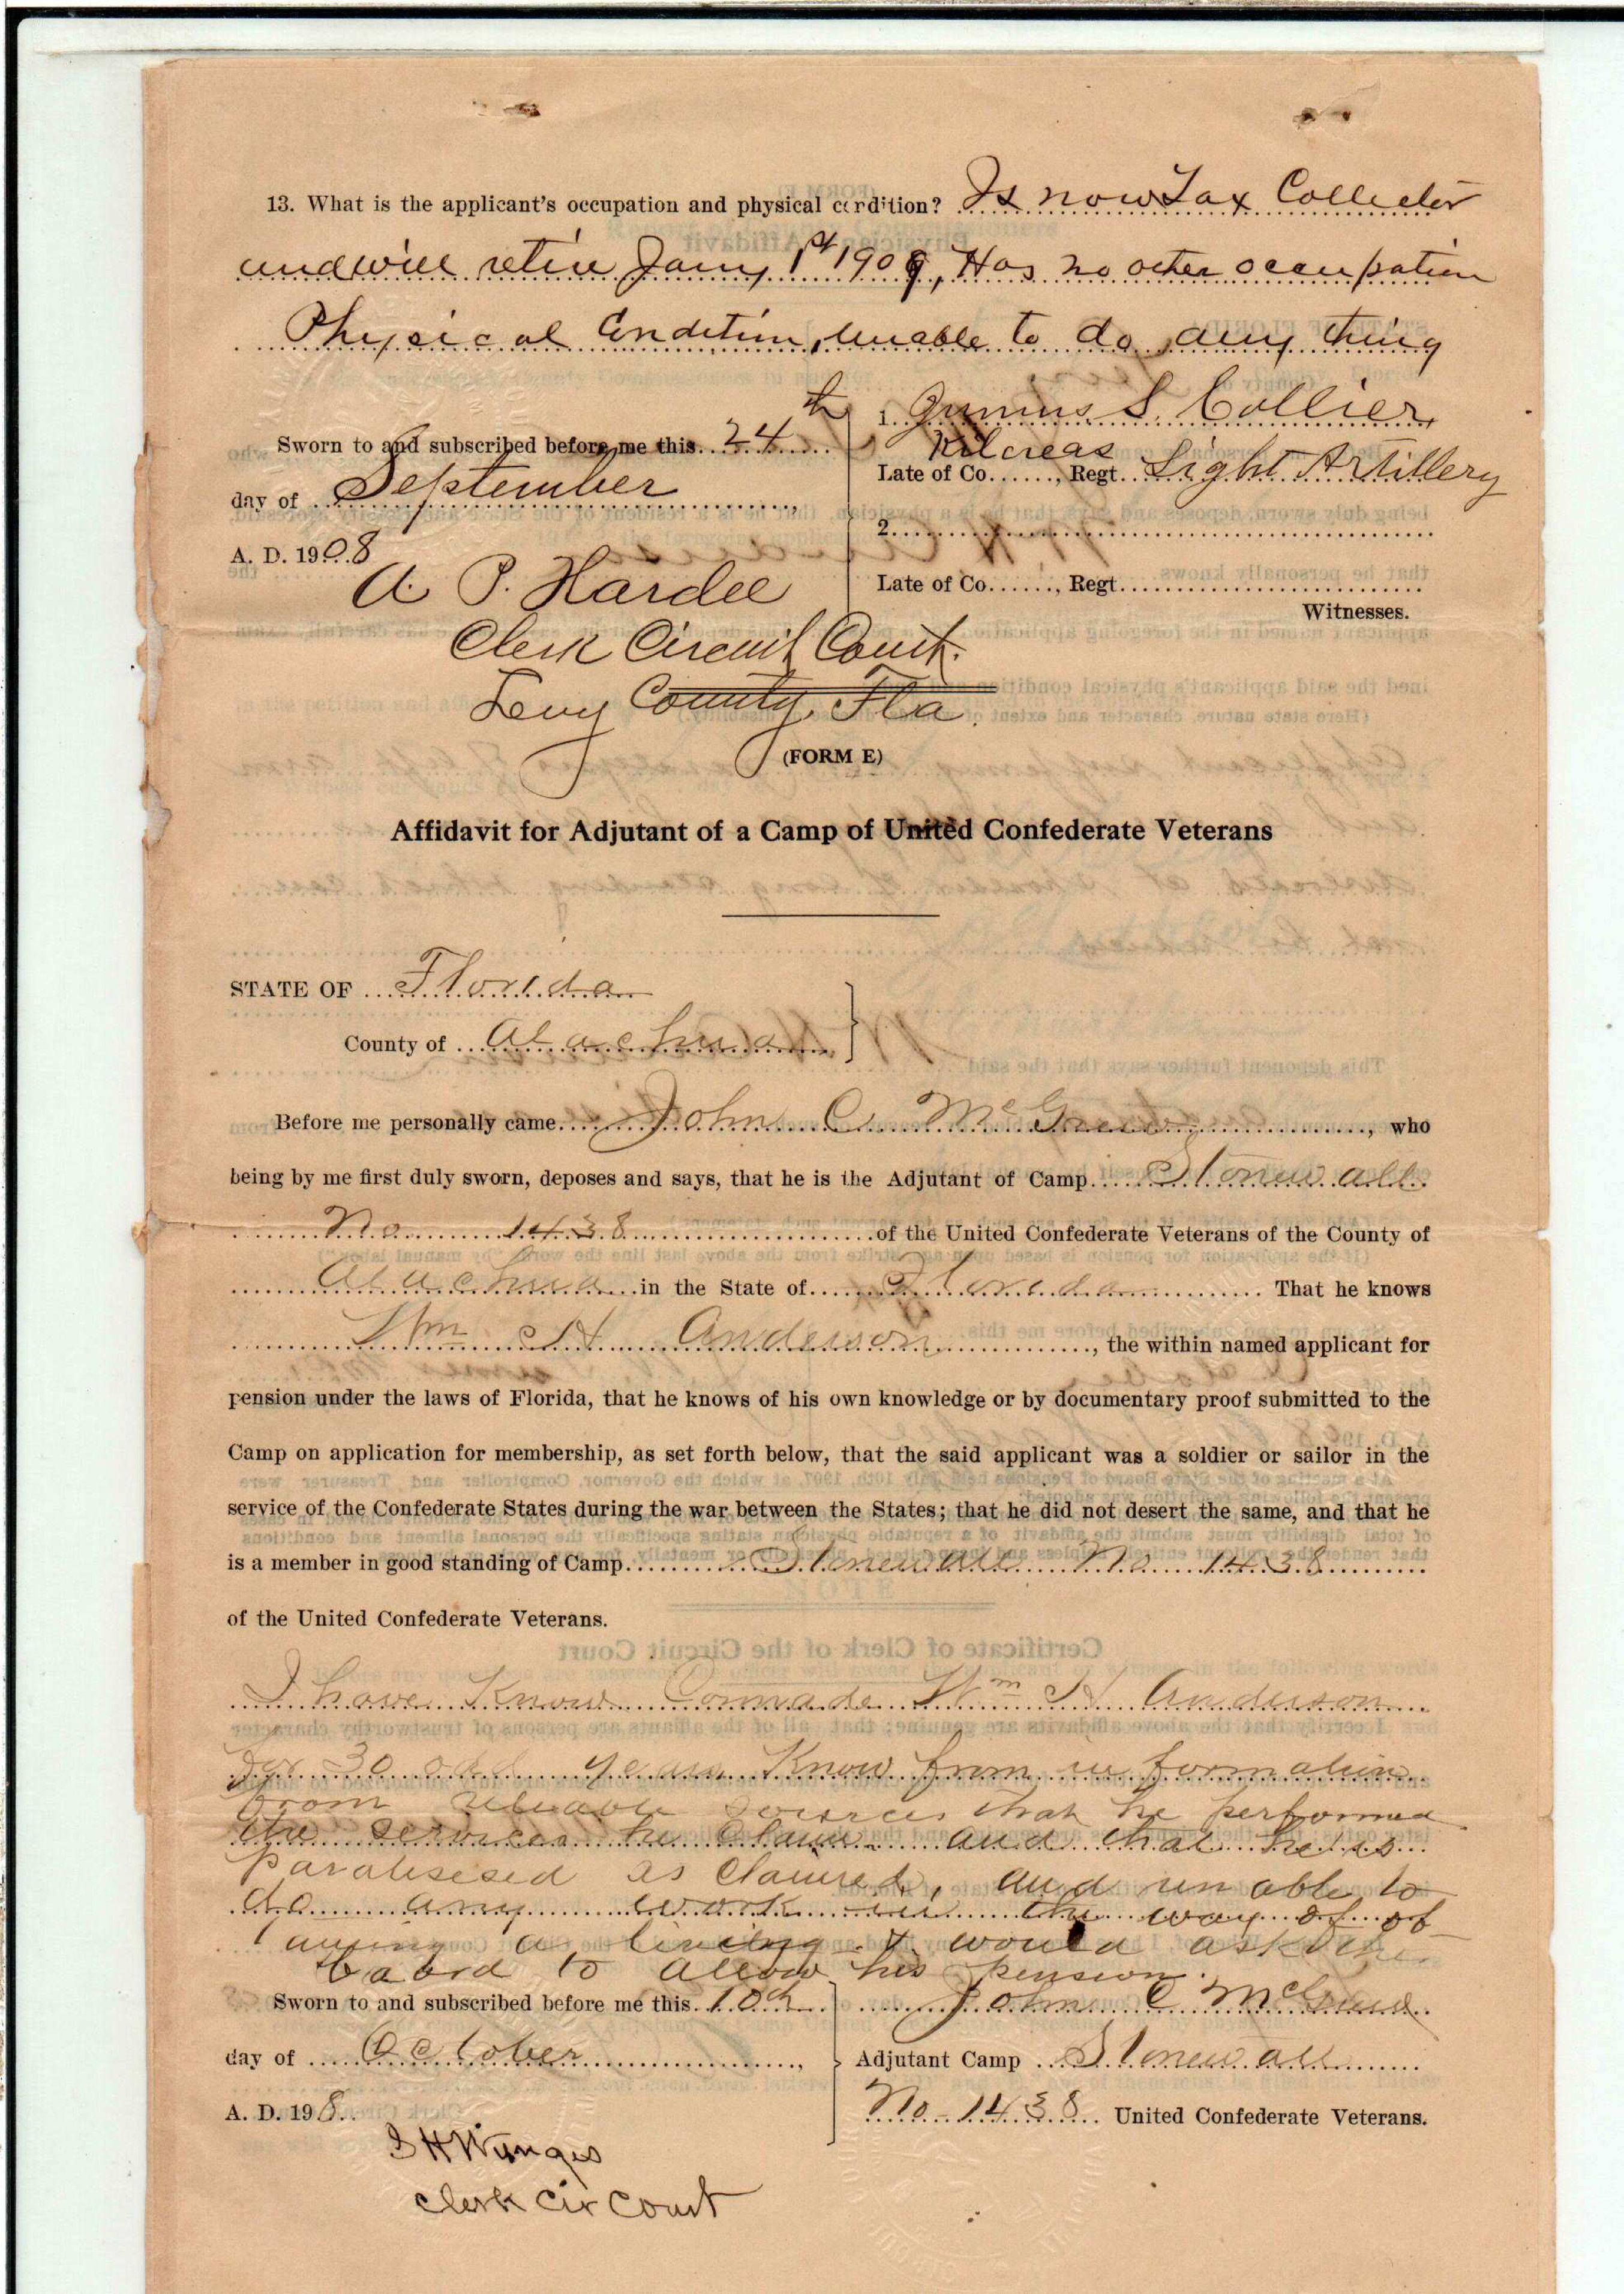 13. What is the applicant's occupation and physical condition? Is now Tax Collector
and will retire Jany 1st 1909, Has no other occupation
Physical Condition, unable to do any thing
Sworn to and subscribed before me this 24th
day of September
A. D. 1908
A. P. Hardee
Clerk Circuit Court.
Levy County, Fla.
1. Junius S. Collier
Kilcreas
Late of Co......, Regt. Light Artillery
2.
Late of Co......, Regt.
Witnesses.
(FORM E)
Affidavit for Adjutant of a Camp of United Confederate Veterans
STATE OF Florida
County of Alachua
Before me personally came John C. McGrew, who
being by me first duly sworn, deposes and says, that he is the Adjutant of Camp Stonewall
No 1438 of the United Confederate Veterans of the County of
Alachua in the State of Florida That he knows
Wm H Anderson, the within named applicant for
pension under the laws of Florida, that he knows of his own knowledge or by documentary proof submitted to the
Camp on application for membership, as set forth below, that the said applicant was a soldier or sailor in the
service of the Confederate States during the war between the States; that he did not desert the same, and that he
is a member in good standing of Camp Stonewall No 1438
of the United Confederate Veterans.
I have Know Comrade Wm H Anderson
for 30 odd years Know from information
from reliable sources that he performed
the services he claims and that he is
paralisesed as claimed, and unable to
do any work in the way of ob-
taining a living & would ask the
board to allow his pension.
Sworn to and subscribed before me this 10th
day of October
A. D. 198
S H Wynges
Clerk Cir Court
John C McGrew
Adjutant Camp Stonewall
No 1438 United Confederate Veterans.